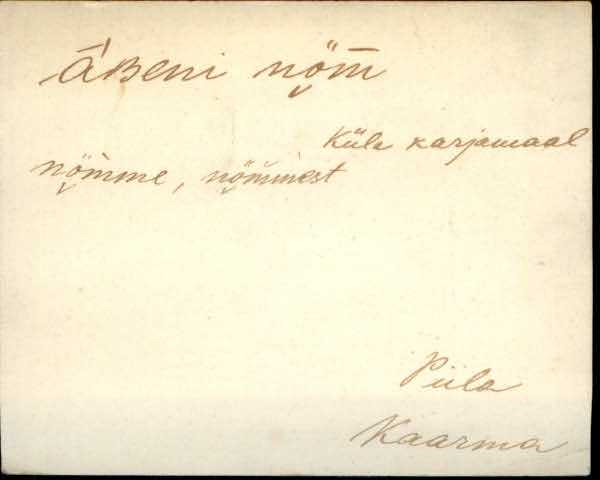 ā̀ʙeni nö̬m̄
Küla karjamaal
nö̬m̀me, nö̬m̆mest
Piila
Kaarma